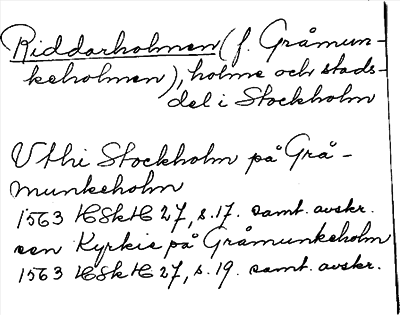 Riddarholmen (f. Gråmun-
keholmen), holme och stads-
del i Stockholm
Vthi Stockholm på Grå-
munkeholm
1563 HSkH 27, s. 17. samt. avskr.
een Kyrkie på Gråmunkeholm
1563 HSkH 27, s. 19. samt. avskr.